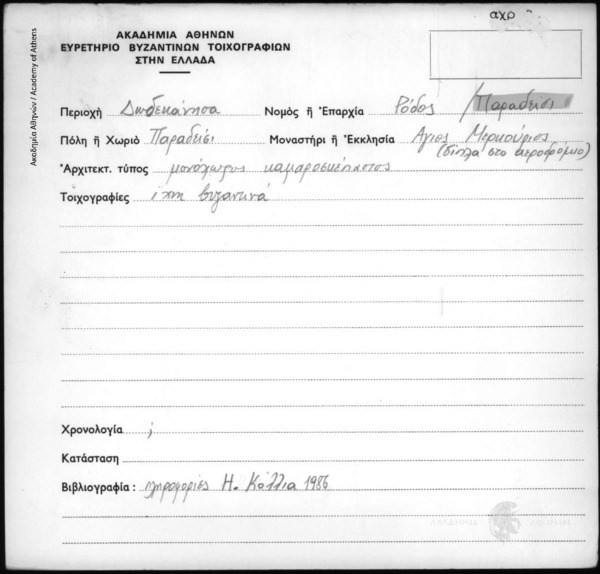 αχρ
ΑΚΑΔΗΜΙΑ ΑΘΗΝΩΝ
ΕΥΡΕΤΗΡΙΟ ΒΥΖΑΝΤΙΝΩΝ ΤΟΙΧΟΓΡΑΦΙΩΝ
ΣΤΗΝ ΕΛΛΑΔΑ
Ακαδημία Αθηνών / Academy of Athens
Περιοχή Δωδεκάνησα Νομός ἤ Ἐπαρχία Ρόδος / Παραδείσι
Πόλη ἤ Χωριό Παραδείσι Μοναστήρι ἤ Ἐκκλησία Άγιος Μερκούριος
(δίπλα στο αεροδρόμιο)
Ἀρχιτεκτ. τύπος μονόχωρος καμαροσκέπαστος
Τοιχογραφίες βυζαντινά
Χρονολογία ;
Κατάσταση
Βιβλιογραφία : πληροφορίες Η. Κόλλια 1986
ΑΚΑΔΗΜΙΑ ΑΘΗΝΩΝ